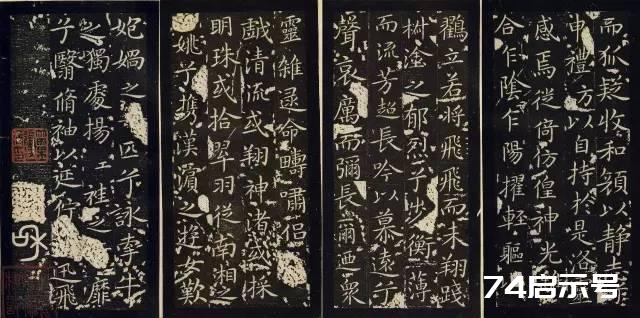 而狐疑收和顏以静志
申禮方以自持於是洛
感焉徙倚仿偟神光
合乍陰乍陽擢輕軀
鸛立若將飛飛而未翔踐
椒塗之郁烈兮步衡薄
而流芳超長吟以慕遠兮
聲哀厲而彌長爾迺衆
靈雜遝命疇嘯侣
戲清流或翔神渚或採
明珠或拾翠羽從南湘之
姚兮攜漢濱之遊女歎
妃媧之匹兮詠牽牛
之獨處揚袿之靡
兮翳脩袖以延佇迅飛
74启示号